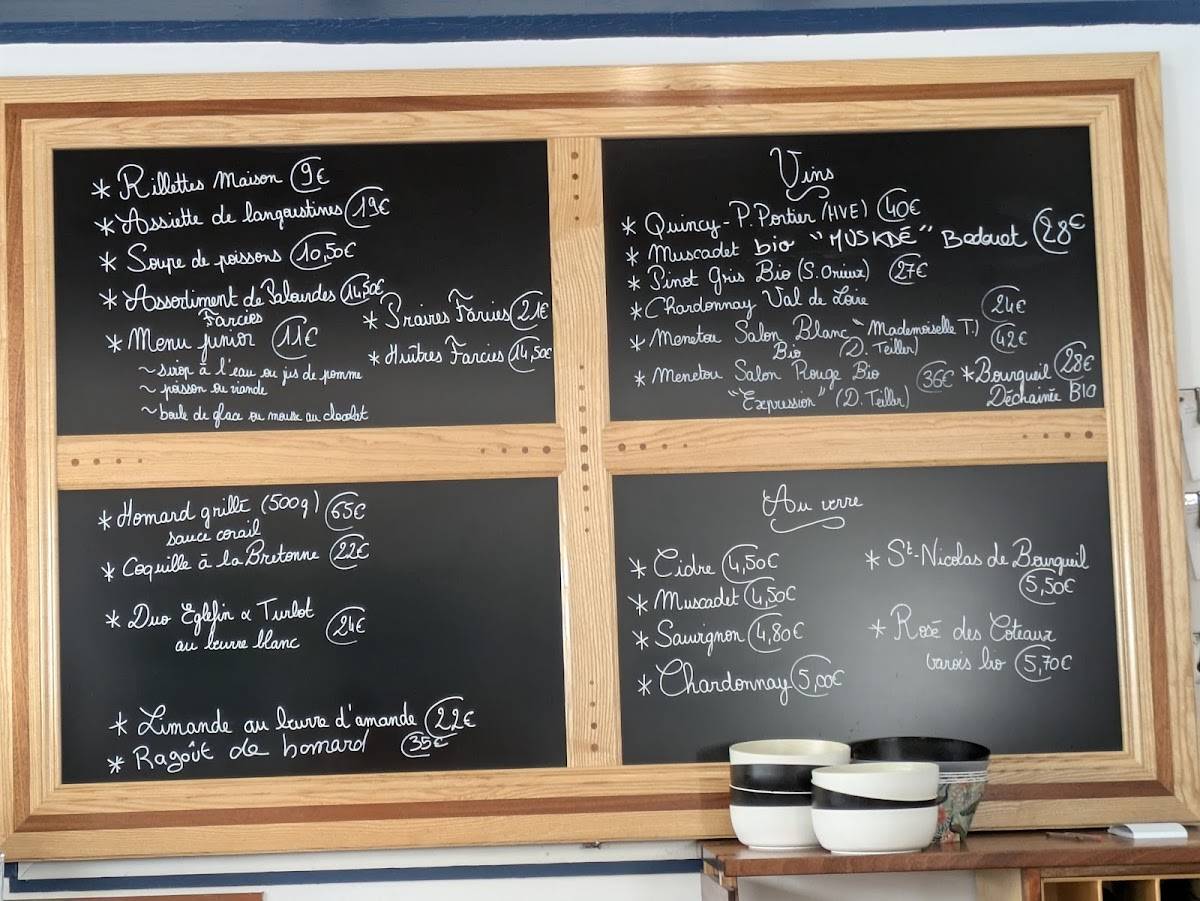 * Rillettes Maison 9€
* Assiette de langoustines 19€
* Soupe de poissons 10,50€
* Assortiment de Palourdes 14,50€
Farcies
* Praires Farcies 21€
* Menu junior 11€
* Huîtres Farcies 14,50€
~ sirop à l'eau ou jus de pomme
~ poisson ou viande
~ boule de glace ou mousse au chocolat
Vins
* Quincy - P. Portier (HVE) 40€
* Muscadet bio "MUSKDÉ" Bedouet 28€
* Pinot Gris Bio (S. Orieux) 27€
* Chardonnay Val de Loire 24€
* Menetou Salon Blanc "Mademoiselle T." 42€
Bio (D. Teiller)
* Menetou Salon Rouge Bio 36€
"Expression" (D. Teiller)
* Bourgueil 28€
Déchainée BIO
* Homard grillé (500g) 65€
sauce corail
* Coquille à la Bretonne 22€
* Duo Eglefin & Turbot 24€
au beurre blanc
* Limande au beurre d'amande 22€
* Ragoût de homard 35€
Au verre
* Cidre 4,50€
* Muscadet 4,50€
* Sauvignon 4,80€
* Chardonnay 5,00€
* St-Nicolas de Bourgueil
5,50€
* Rosé des Coteaux
varois bio 5,70€